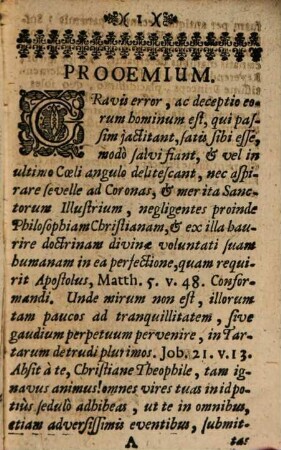 ( I )
PROOEMIUM.
GRavis error, ac deceptio eo-
rum hominum est, qui pas-
sim jactitant, satis sibi esse,
modò salvi fiant, & vel in
ultimo Cœli angulo delitescant, nec aspi-
rare se velle ad Coronas, & merita Sanc-
torum Illustrium, negligentes proinde
Philosophiam Christianam, & ex illa hau-
rire doctrinam divinæ voluntati suam
humanam in ea perfectione, quam requi-
rit Apostolus, Matth. 5. v. 48. Confor-
mandi. Unde mirum non est, illorum
tam paucos ad tranquillitatem, sive
gaudium perpetuum pervenire, in Tar-
tarum detrudi plurimos. Job. 21. v. 13.
Absit à te, Christiane Theophile, tam
ignavus animus! omnes vires tuas in id po-
tiùs sedulò adhibeas, ut te in omnibus,
etiam adversissimis eventibus, submit-
A tas